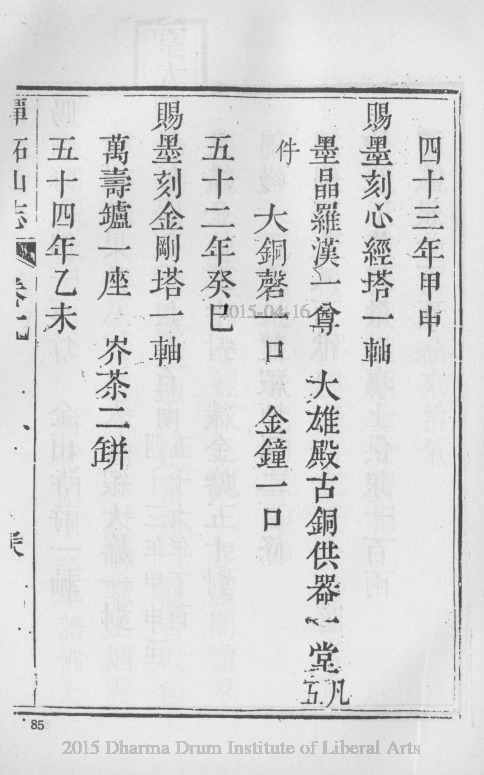 四十三年甲申
賜墨刻心經塔一軸
墨晶羅漢一尊 大雄殿古銅供器一堂凡五
件 大銅磬一口 金鐘一口
五十二年癸巳
賜墨刻金剛塔一軸
萬壽鑪一座 岕茶二缾
五十四年乙未
潭柘山志 卷九
2015-04-16
85
2015 Dharma Drum Institute of Liberal Arts